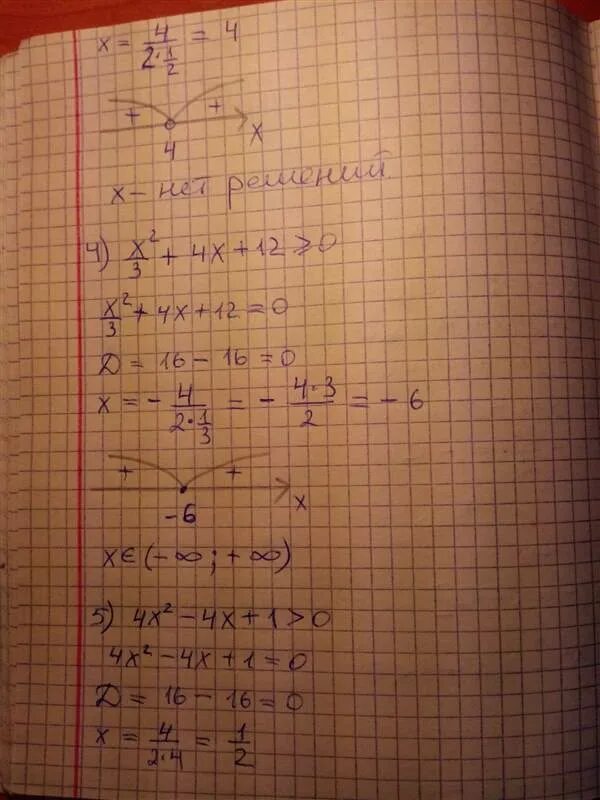 x = 4/(2·1/2) = 4
+ +
4 x
x – нет решений
4) x²/3 + 4x + 12 ≥ 0
x²/3 + 4x + 12 = 0
D = 16 – 16 = 0
x = – 4/(2·1/3) = – (4·3)/2 = – 6
+ +
-6 x
x ∈ (–∞; +∞)
5) 4x² – 4x + 1 > 0
4x² – 4x + 1 = 0
D = 16 – 16 = 0
x = 4/(2·4) = 1/2